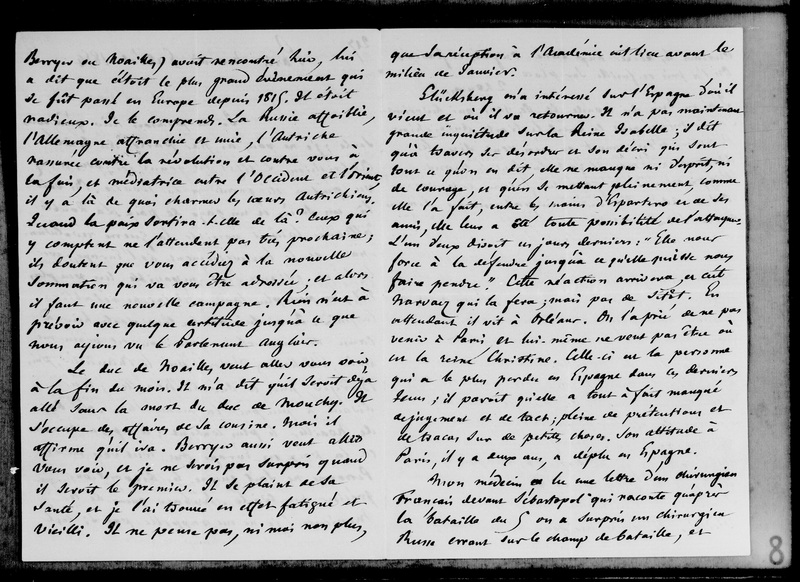 Berryer ou Noailles) avait rencontré hier, lui
a dit que c'étoit le plus grand évènement qui
se fût passé en Europe depuis 1815. Il étoit
radieux. Je le comprends. La Russie affoiblie,
l'Allemagne affranchie et unie, l'Autriche
rassurée contre la révolution et contre vous à
la fois, et médiatrice entre l'Occident et l'Orient,
il y a là de quoi charmer les cœurs Autrichiens.
Quand la paix sortira-t-elle de là? Ceux qui
y comptent ne l'attendent pas très prochaine;
ils doutent que vous accédiez à la nouvelle
sommation qui va vous être adressée, et alors
il faut une nouvelle campagne. Rien n'est à
prévoir avec quelque certitude jusqu'à ce que
nous ayions vu le Parlement anglais.
Le duc de Noailles veut aller vous voir
à la fin du mois. Il m'a dit qu'il seroit déjà
allé sans la mort du duc de Mouchy. Il
s'occupe des affaires de sa cousine. Mais il
affirme qu'il ira. Berryer aussi veut aller
vous voir, et je ne serois pas surpris quand
il seroit le premier. Il se plaint de sa
santé, et je l'ai trouvé en effet fatigué et
vieilli. Il ne pense pas, ni moi non plus,
que sa réception à l'Académie ait lieu avant le
milieu de Janvier.
Glücksberg m'a intéressé sur l'Espagne d'où il
vient et où il va retourner. Il n'a pas maintenant
grande inquiétude sur la Reine Isabelle; il dit
qu'à travers ses désordres et son décri qui sont
tout ce qu'on en dit, elle ne manque ni d'esprit, ni
de courage, et qu'en se mettant pleinement, comme
elle l'a fait, entre les mains d'Espartero et de ses
amis, elle leur a ôté toute possibilité de l'attaquer.
L'un d'eux disoit ces jours derniers: "Elle nous
force à la défendre jusqu'à ce qu'elle puisse nous
faire pendre." Cette réaction arrivera, et c'est
Narvaez qui la fera; mais pas de sitôt. En
attendant il vit à Orléans. On l'a prié de ne pas
venir à Paris et lui-même ne veut pas être où
est la reine Christine. Celle-ci est la personne
qui a le plus perdu en Espagne dans ces derniers
tems; il paroit qu'elle a tout à fait manqué
de jugement et de tact; pleine de prétentions et
de tracas sur de petites choses. Son attitude à
Paris, il y a deux ans, a déplu en Espagne.
Mon médecin a lu une lettre d'un chirurgien
Français devant Sébastopol qui raconte qu'après
la bataille du 5 on a surpris un chirurgien
Russe errant sur le champ de bataille, et
8